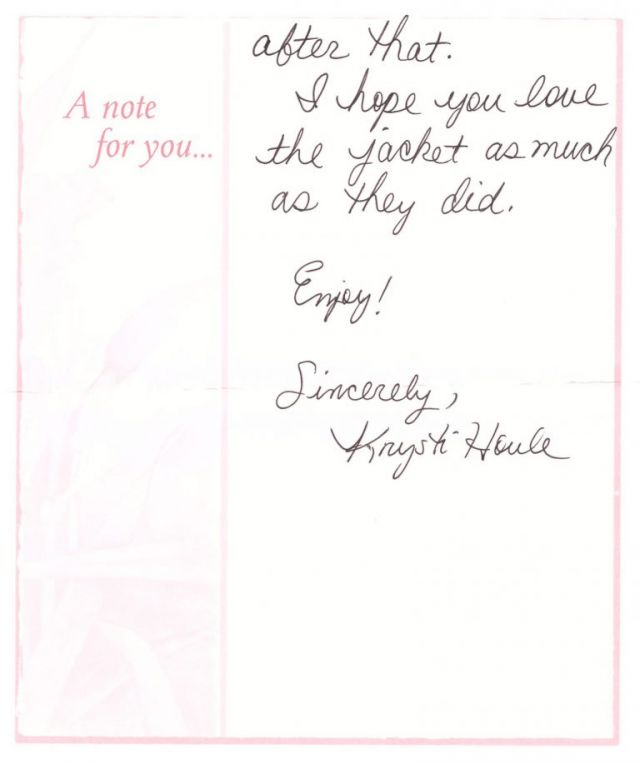 A note
for you...
after that.
I hope you love
the jacket as much
as they did.
Enjoy!
Sincerely,
Krysti Houle